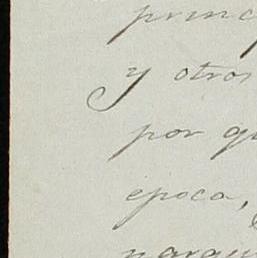 princ
y otros
por qu
epoca,